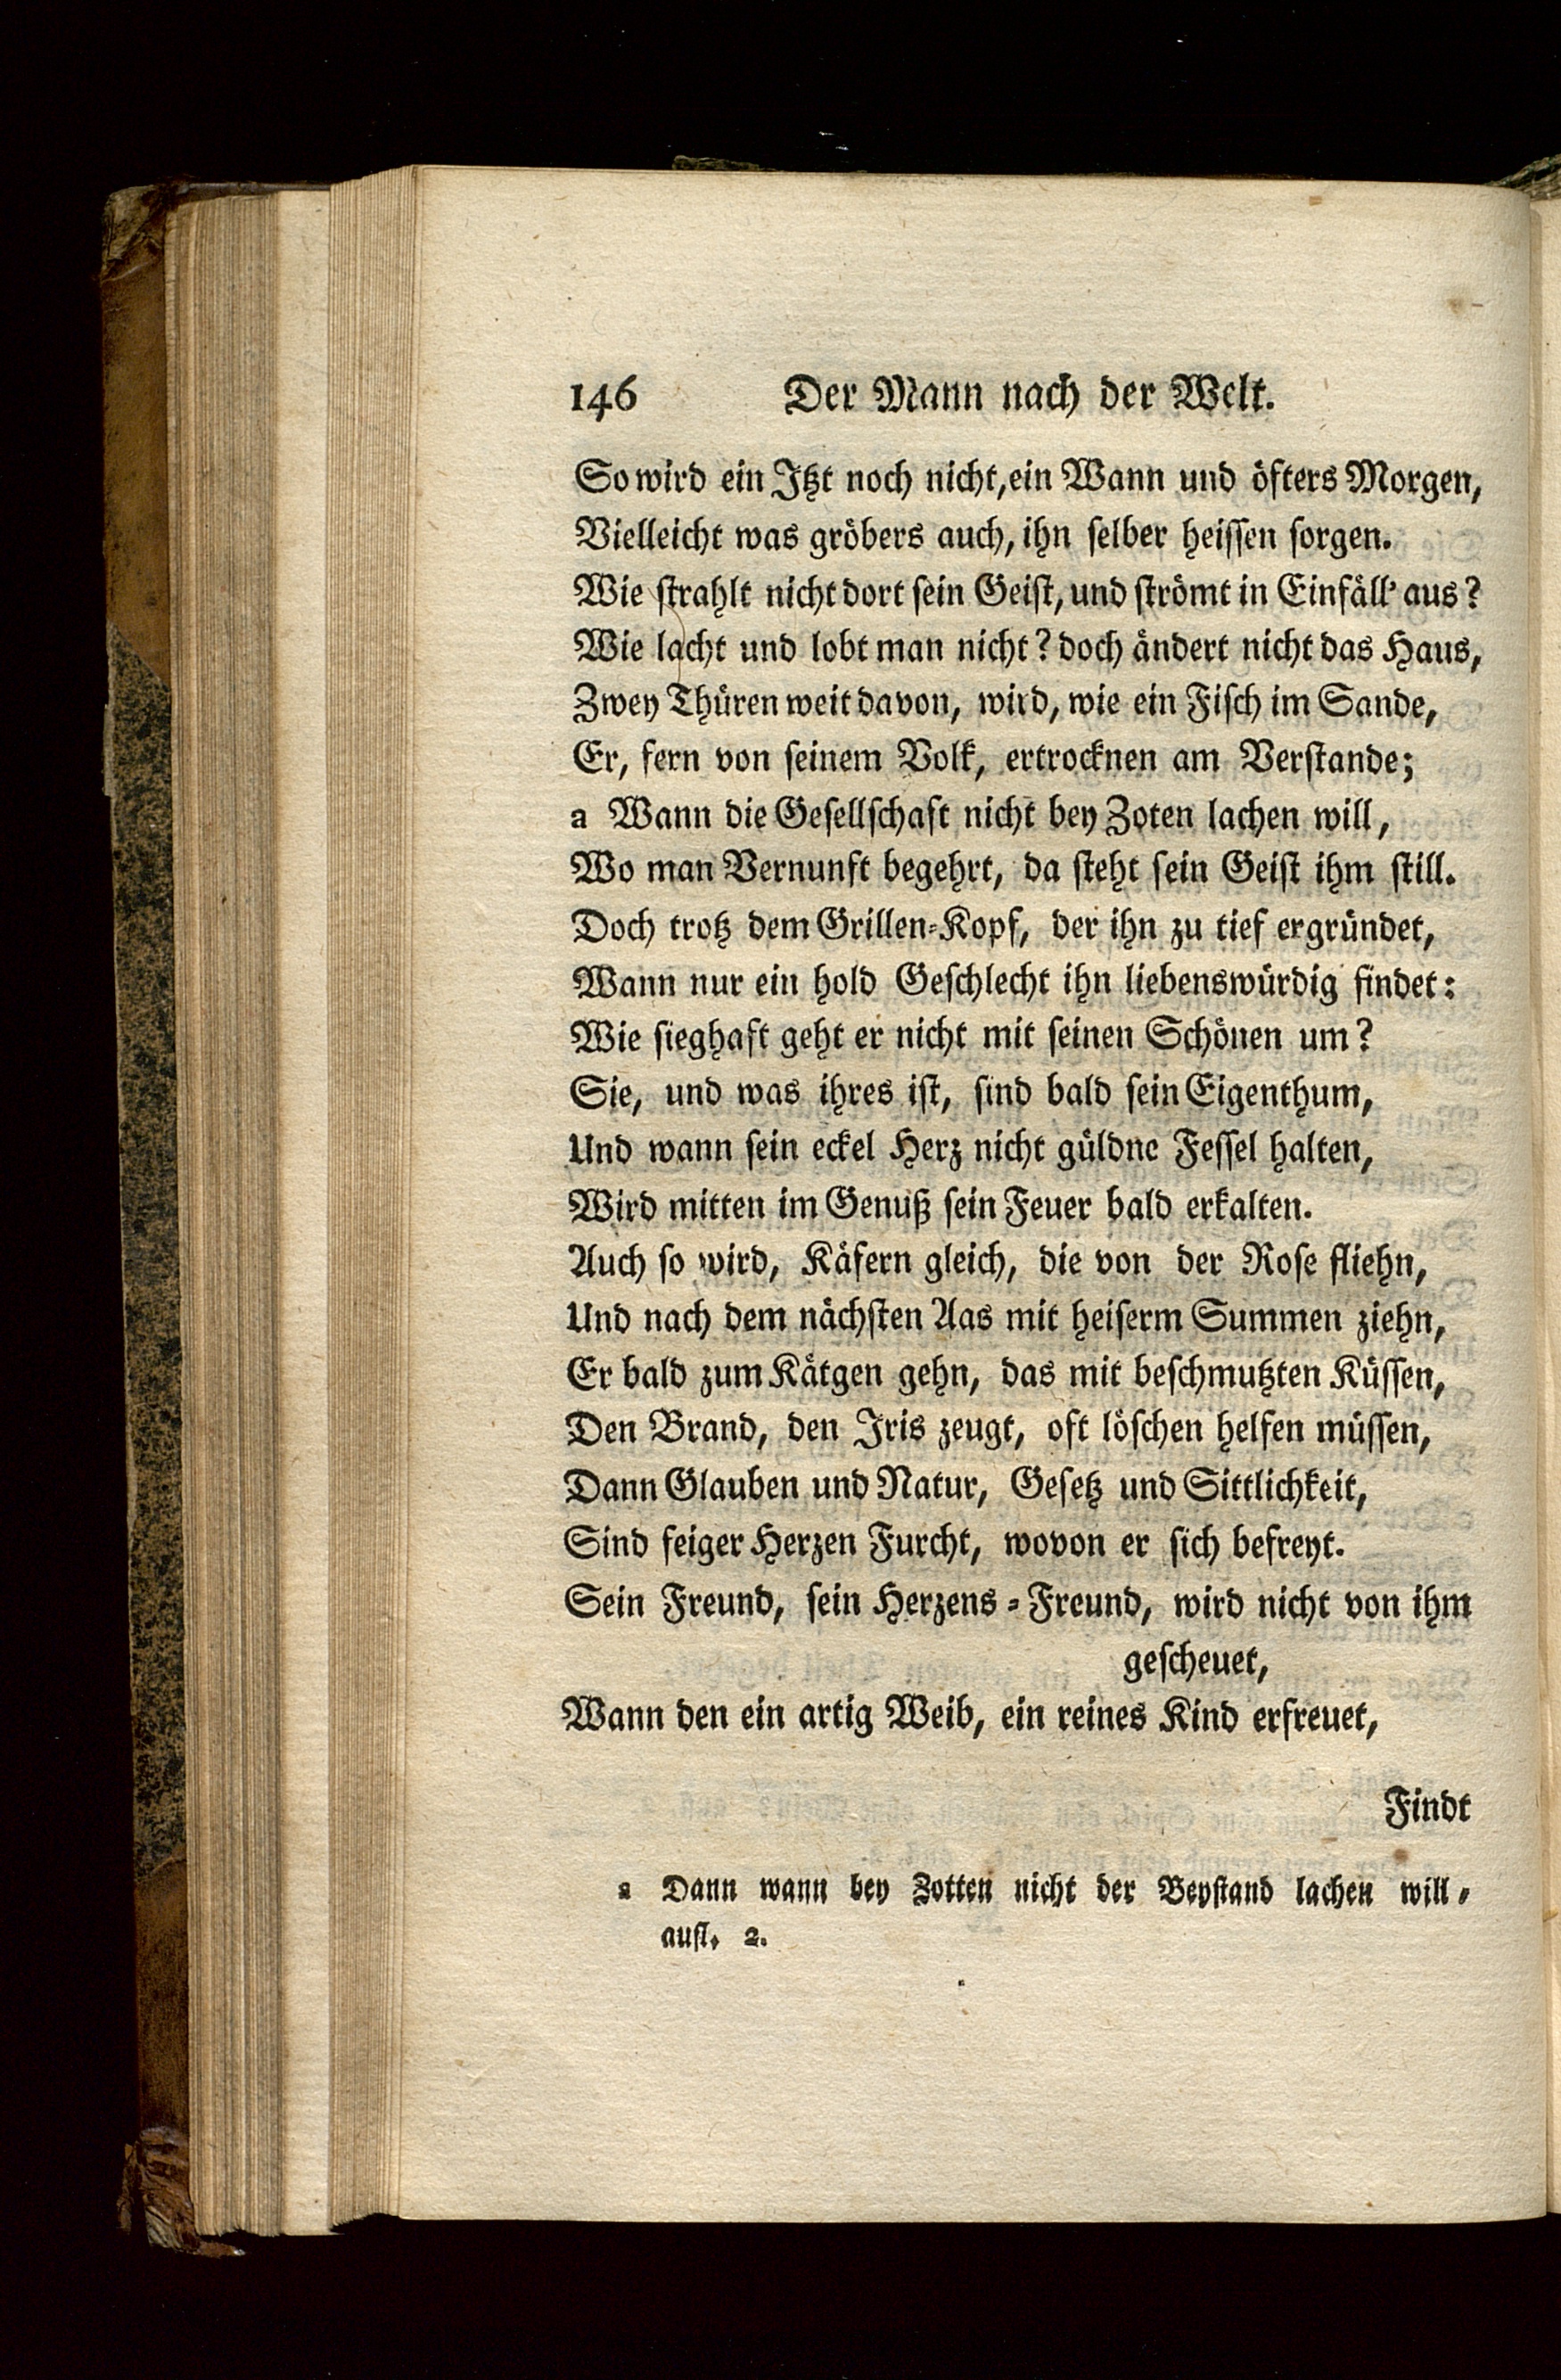 146 Der Mann nach der Welt.
So wird ein Itzt noch nicht, ein Wann und öfters Morgen,
Vielleicht was gröbers auch, ihn selber heissen sorgen.
Wie strahlt nicht dort sein Geist, und strömt in Einfäll' aus?
Wie lacht und lobt man nicht? doch ändert nicht das Haus,
Zwey Thüren weit davon, wird, wie ein Fisch im Sande,
Er, fern von seinem Volk, ertrocknen am Verstande;
a Wann die Gesellschaft nicht bey Zoten lachen will,
Wo man Vernunft begehrt, da steht sein Geist ihm still.
Doch trotz dem Grillen-Kopf, der ihn zu tief ergründet,
Wann nur ein hold Geschlecht ihn liebenswürdig findet:
Wie sieghaft geht er nicht mit seinen Schönen um?
Sie, und was ihres ist, sind bald sein Eigenthum,
Und wann sein eckel Herz nicht güldne Fessel halten,
Wird mitten im Genuß sein Feuer bald erkalten.
Auch so wird, Käfern gleich, die von der Rose fliehn,
Und nach dem nächsten Aas mit heiserm Summen ziehn,
Er bald zum Kätgen gehn, das mit beschmutzten Küssen,
Den Brand, den Iris zeugt, oft löschen helfen müssen,
Dann Glauben und Natur, Gesetz und Sittlichkeit,
Sind feiger Herzen Furcht, wovon er sich befreyt.
Sein Freund, sein Herzens-Freund, wird nicht von ihm
gescheuet,
Wann den ein artig Weib, ein reines Kind erfreuet,
Findt
a Dann wann bey Zotten nicht der Beystand lachen will,
aufl. 2.